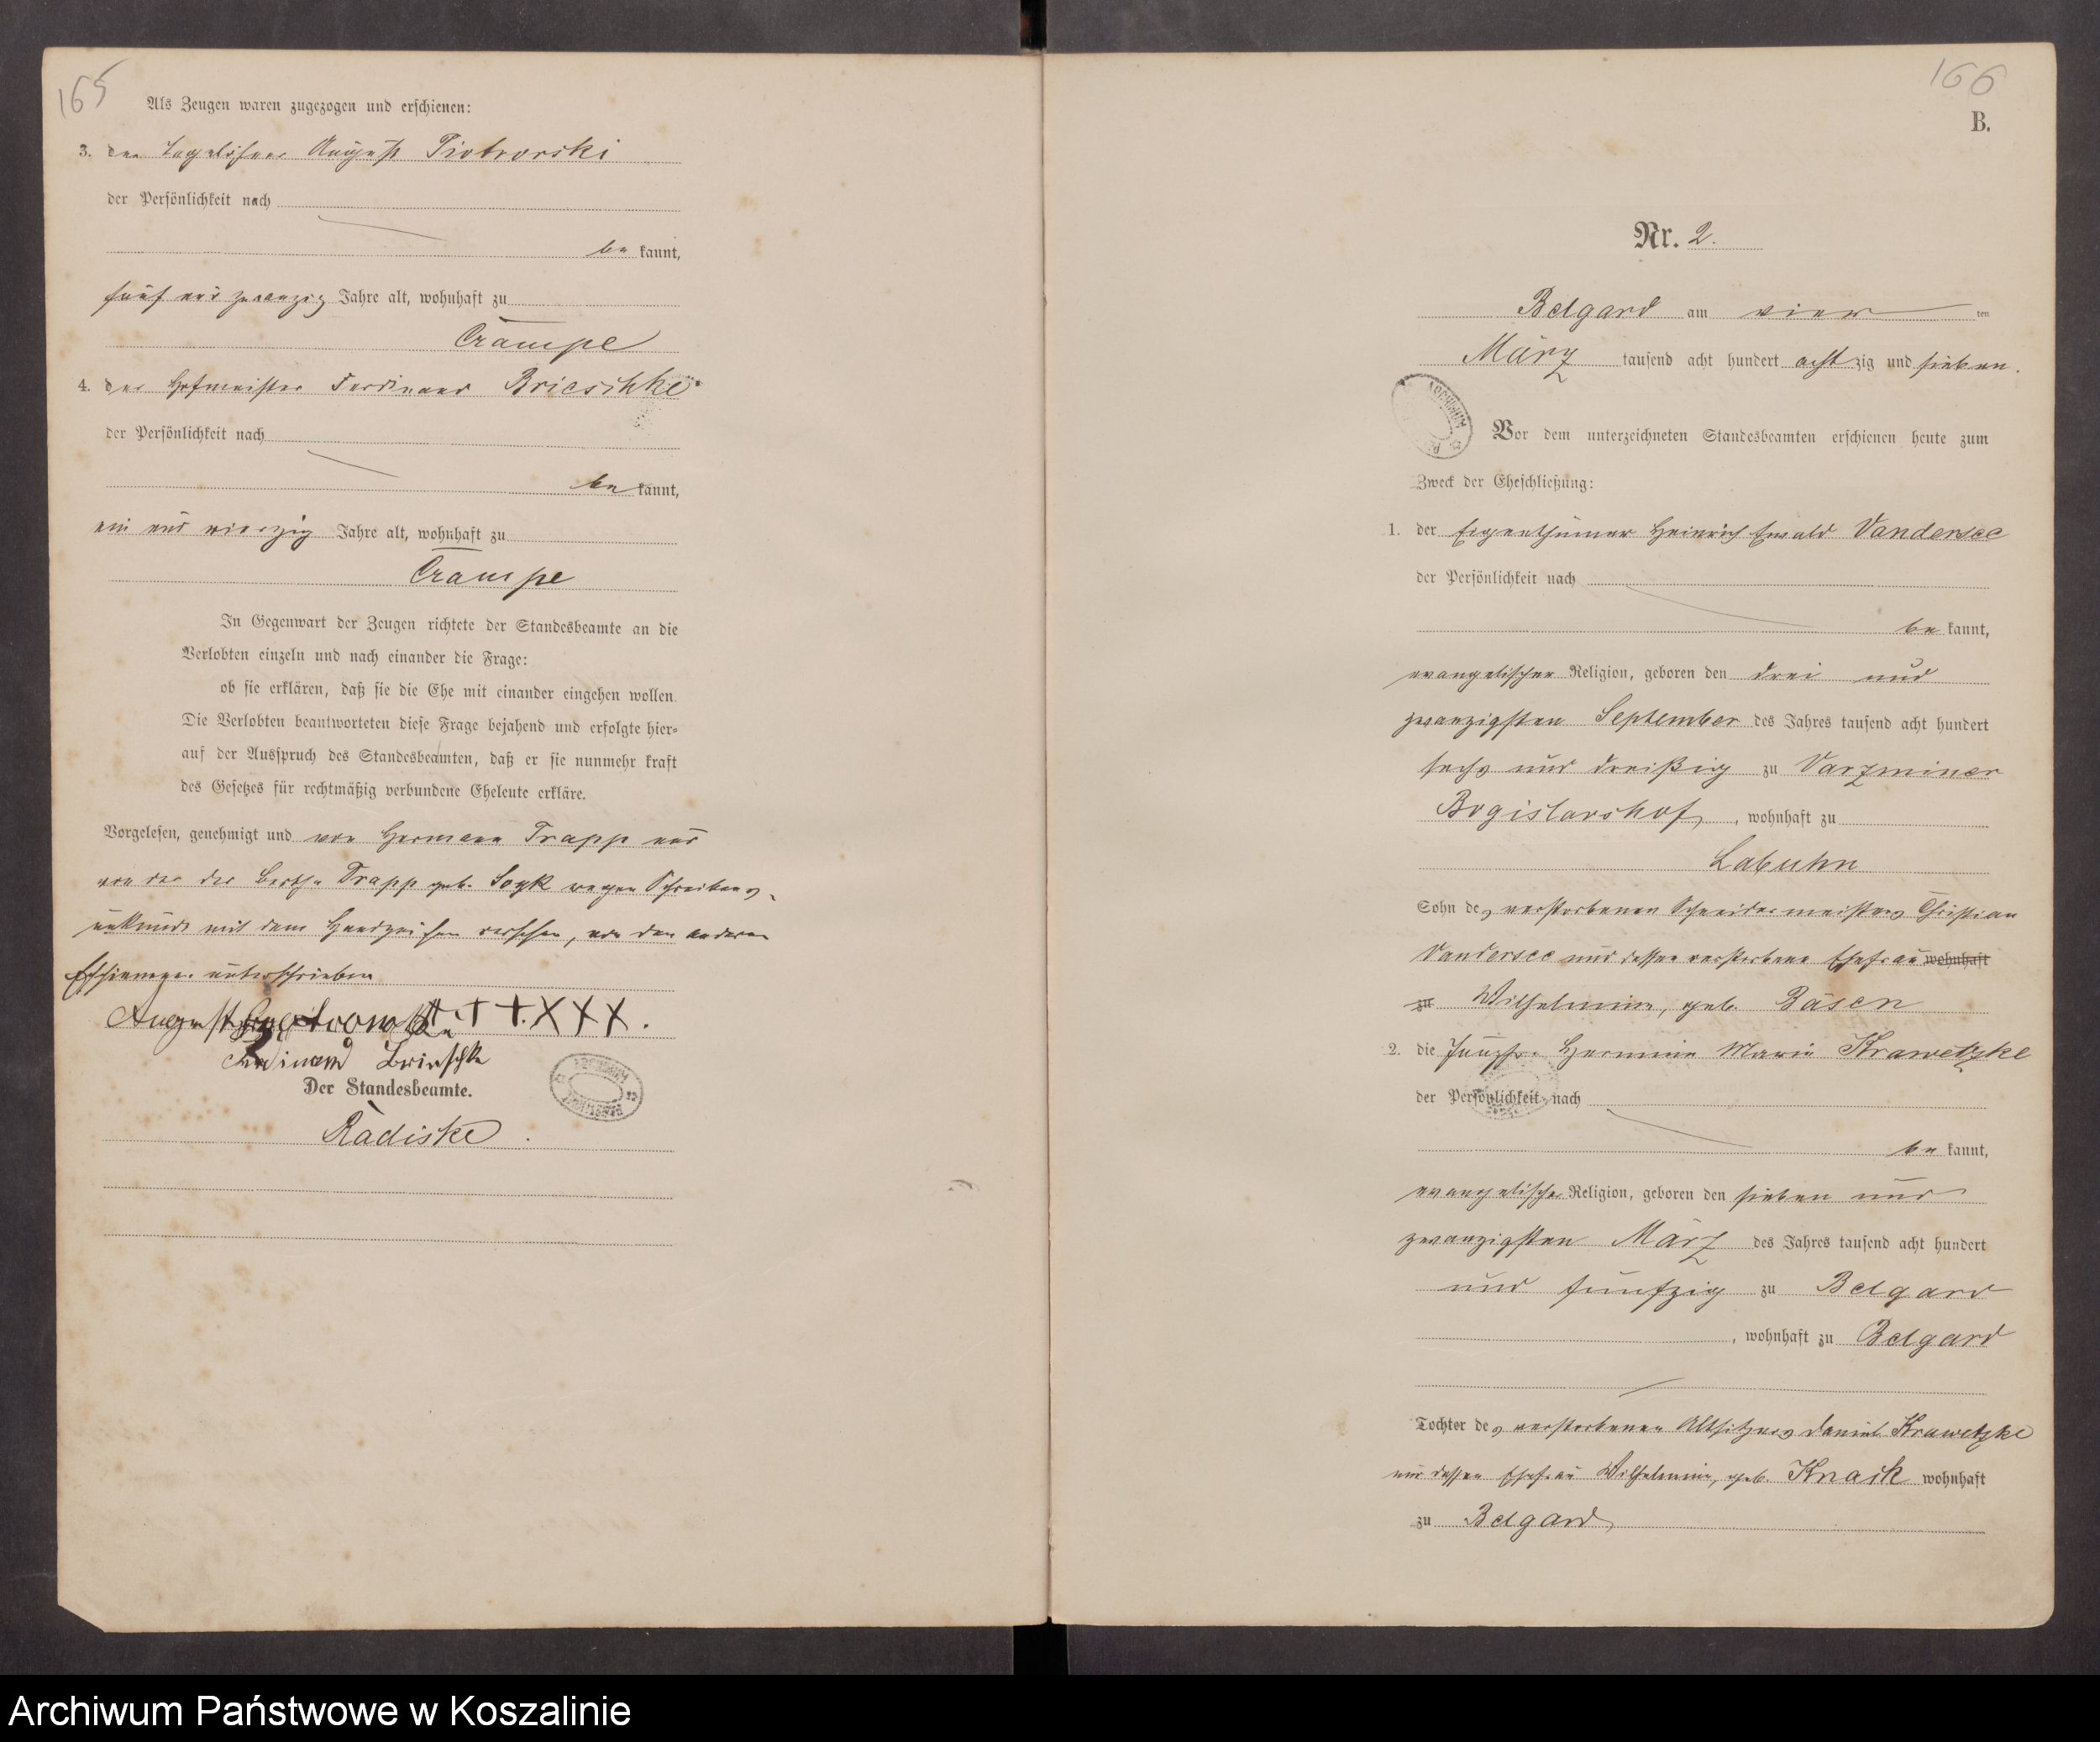 165
Als Zeugen waren zugezogen und erschienen:
3. der Tagelöhner August Piotrorski
der Persönlichkeit nach
be kannt,
fünf und zwanzig Jahre alt, wohnhaft zu
Crampe
4. der Hofmeister Ferdinand Brieschke
der Persönlichkeit nach
be kannt,
ein und vierzig Jahre alt, wohnhaft zu
Crampe
In Gegenwart der Zeugen richtete der Standesbeamte an die
Verlobten einzeln und nach einander die Frage:
ob sie erklären, daß sie die Ehe mit einander eingehen wollen.
Die Verlobten beantworteten diese Frage bejahend und erfolgte hier=
auf der Ausspruch des Standesbeamten, daß er sie nunmehr kraft
des Gesetzes für rechtmäßig verbundene Eheleute erkläre.
Vorgelesen, genehmigt und von Hermann Trapp und
von der Bertha Trapp geb. Sogk wegen Schreibens-
unkunde mit dem Handzeichen versehen, von den anderen
Erschienenen unterschrieben
August +++.XXX.
Ferdinand Brieschke
Der Standesbeamte.
Radiske
166
B.
Nr. 2.
Belgard am vier ten
März tausend acht hundert acht zig und sieben.
Vor dem unterzeichneten Standesbeamten erschienen heute zum
Zweck der Eheschließung:
1. der Eigenthümer Heinrich Ewald Vandersee
der Persönlichkeit nach
be kannt,
evangelischer Religion, geboren den drei und
zwanzigsten September des Jahres tausend acht hundert
sechs und dreißig zu Varzminer
Bogislarshof, wohnhaft zu
Labuhn
Sohn des verstorbenen Schneidermeisters Christian
Vandersee und dessen verstorbene Ehefrau wohnhaft
zu Wilhelmine, geb. Bäsen
2. die Jungfr. Hermine Marie Krawetzke
der Persönlichkeit nach
be kannt,
evangelischer Religion, geboren den sieben und
zwanzigsten März des Jahres tausend acht hundert
und fünfzig zu Belgard
, wohnhaft zu Belgard
Tochter des verstorbenen Altsitzers Daniel Krawetzke
und dessen Ehefrau Wilhelmine, geb. Knack wohnhaft
zu Belgard
Archiwum Państwowe w Koszalinie